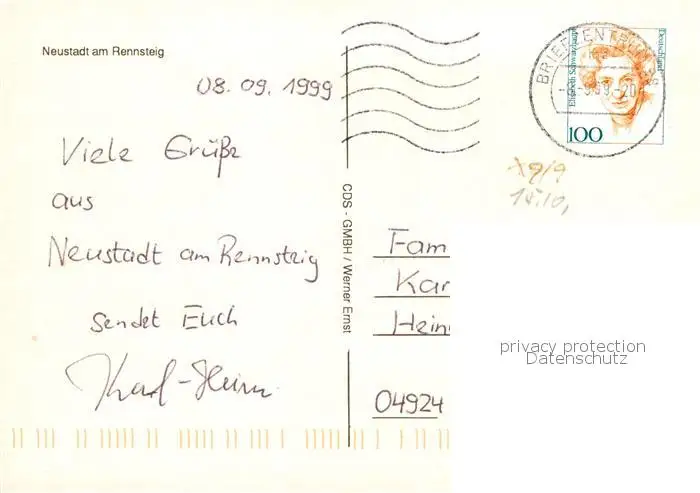 Neustadt am Rennsteig
08.09.1999
Viele Grüße
aus
Neustadt am Rennsteig
sendet Euch
Karl-Heinz
CDS - GMBH / Werner Ernst
BRIEFZENTRUM
Deutschland
Elisabeth Schwarzhaupt
100
19/9
14.10,
Fam
Kar
Hein
04924
privacy protection
Datenschutz